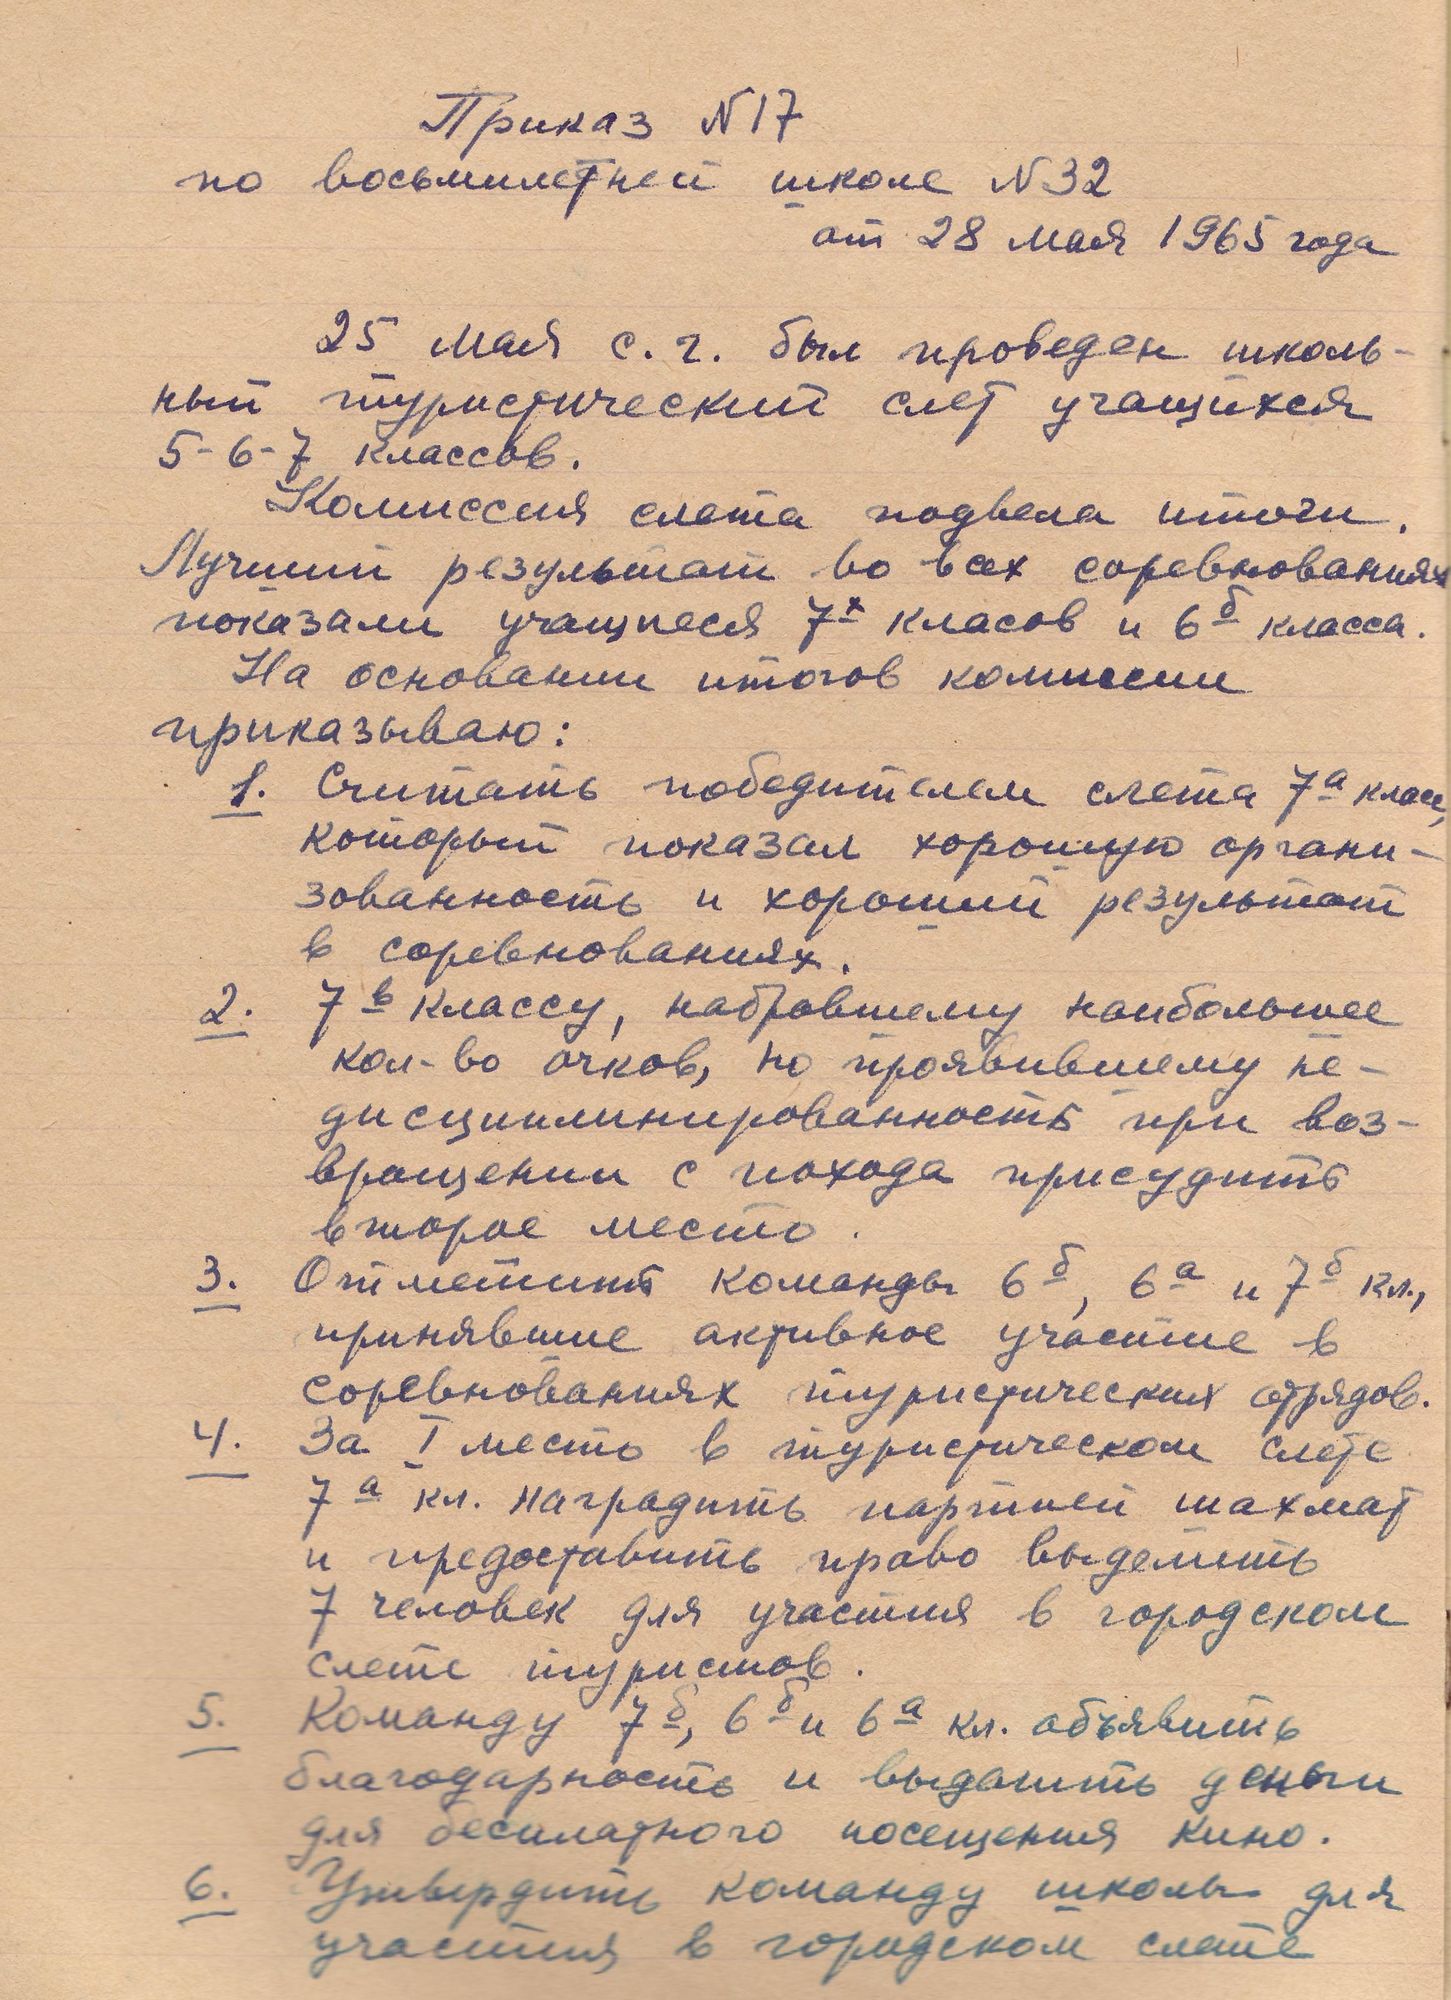 Приказ N 17
по восьмилетней школе N 32
от 28 мая 1965 года
25 мая с. г. был проведен школь-
ный туристический слет учащихся
5-6-7 классов.
Комиссия слета подвела итоги.
Лучший результат во всех соревнованиях
показали учащиеся 7х класов и 6б класса.
На основании итогов комиссии
приказываю:
1. Считать победителем слета 7а класс,
который показал хорошую органи-
зованность и хороший результат
в соревнованиях.
2. 7в классу, набравшему наибольшее
кол-во очков, но проявившему не-
дисциплинированность при воз-
вращении с похода присудить
второе место.
3. Отметить команды 6б, 6а и 7б кл.,
принявшие активное участие в
соревнованиях туристических отрядов.
4. За I место в туристическом слете
7а кл. наградить партией шахмат
и предоставить право выделить
7 человек для участия в городском
слете туристов.
5. Команду 7б, 6б и 6а кл. объявить
благодарность и выдать деньги
для бесплатного посещения кино.
6. Утвердить команду школы для
участия в городском слете